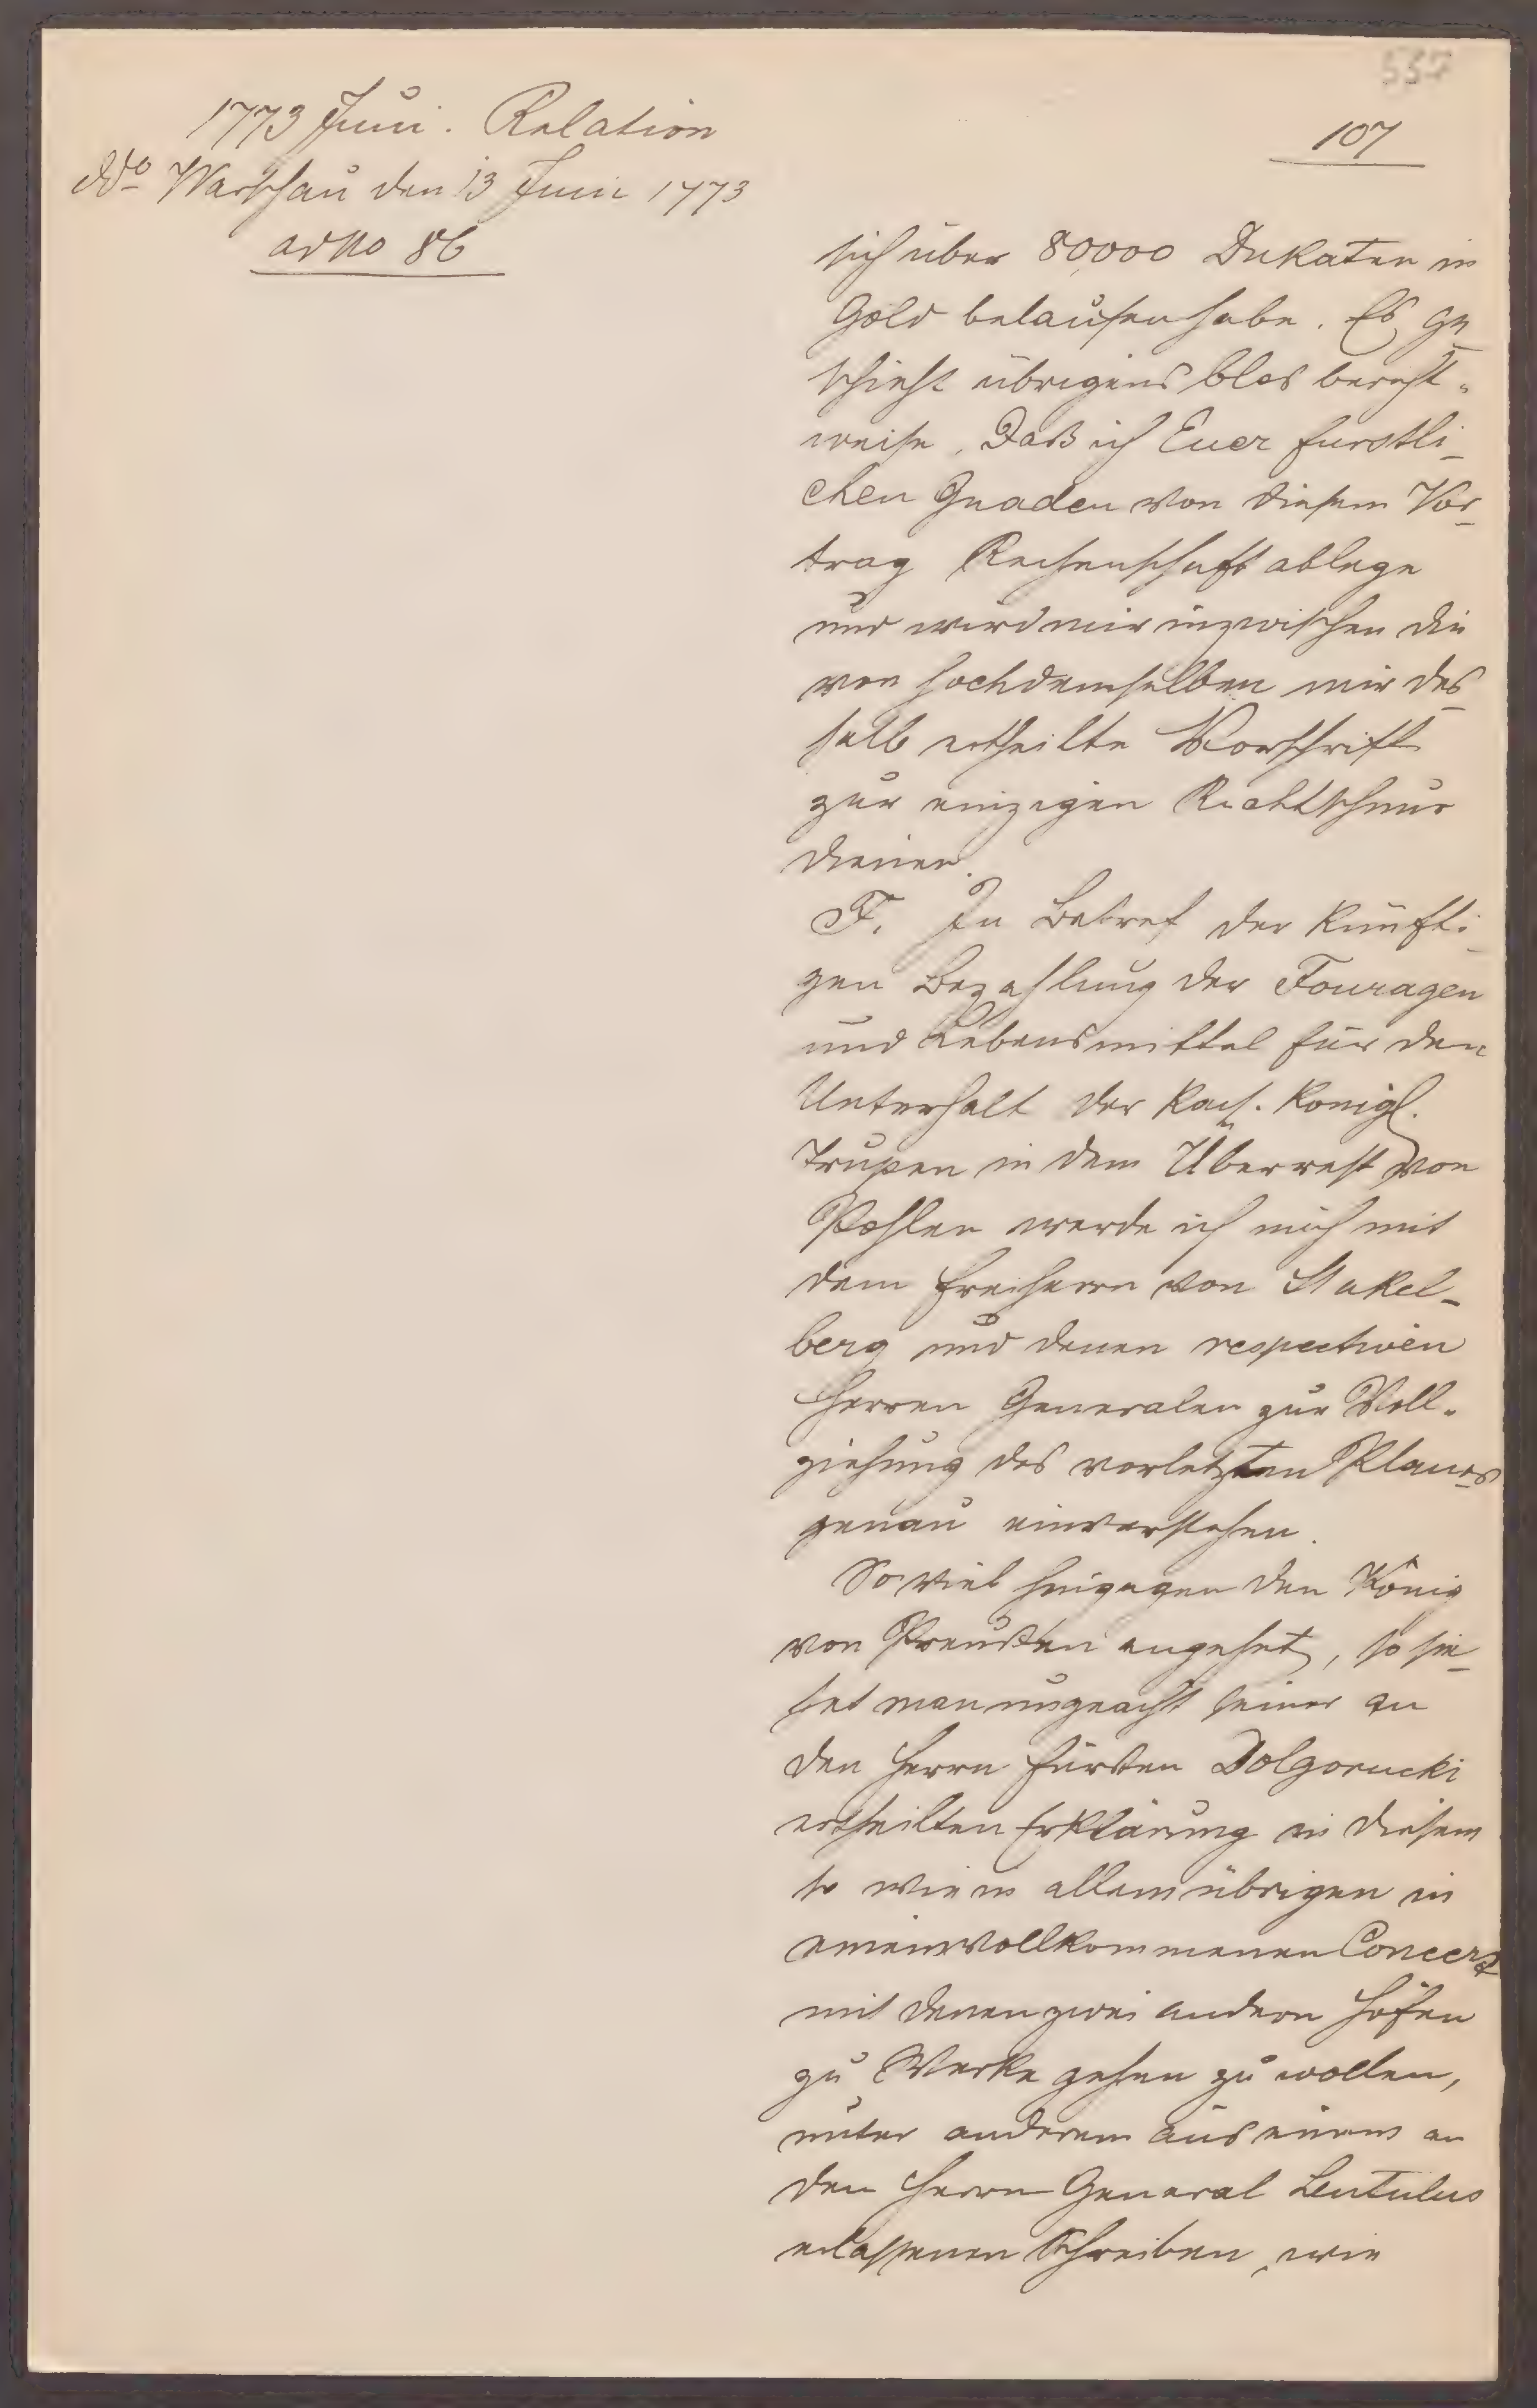 557
1773 Juni. Relation
ddo Warschau den 13 Juni 1773
ad No 86
107
sich über 80,000 Dukaten in
Gold belaufen habe. Es ge_
schieht übrigens blos bericht-
weise, daß ich Euer furstli_
chen Gnaden von diesem Vor_
trag Rechenschaft ablege
und wird mir inzwischen die
von hochdemselben mir des_
halb ertheilte Vorschrift
zur einzigen Richtschnur
dienen.
F. In Betref der künfti_
gen Bezahlung der Fouragen
und Lebensmittel für den
Unterhalt der Kais. Königl.
Trupen in dem Überrest von
Pohlen werde ich mich mit
dem Freiherrn von Stakel-
berg und denen respectiven
Herren Generalen zur Voll-
ziehung des vorletzten Planes
genau einverstehen.
So viel hingegen den König
von Preußen angehet, so sie_
het man ungeacht seiner an
den Herrn Fürsten Dolgorucki
ertheilten Erklärung in diesem
so wie in allem übrigen in
einem vollkommenen Concert
mit denen zwei andern Höfen
zu Werke gehen zu wollen,
unter anderem aus einem an
den Herrn General Lentulus
erlassenen Schreiben, wie